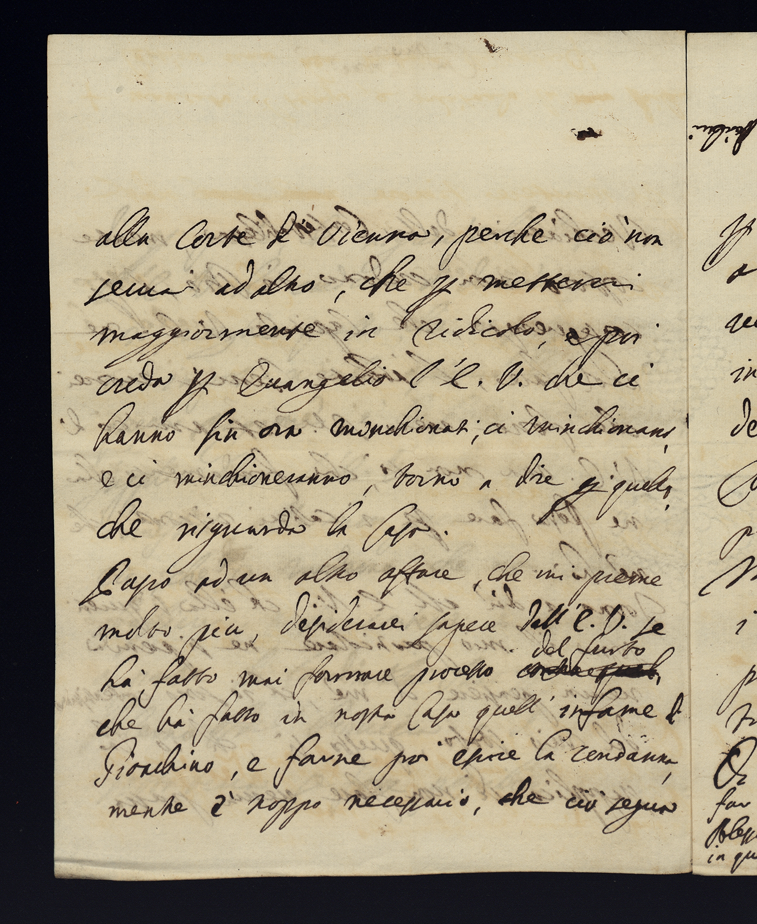 alla Corte di Vienna, perche ciò non
servirà ad altro, che p metterci
maggiormente in ridicolo, e poi
creda p Evangelio l'E. V. che ci
hanno fin ora minchionati, ci minchionano,
e ci minchioneranno, torno a dire p quello,
che riguarda la Casa.
Passo ad un altro affare, che mi preme
molto piu, desiderarei sapere dall'E. V. se
ha fatto mai formare processo del furto
che hà fatto in nostra Casa quell'infame di
Gioachino, e farne poi espore la condanna,
mentre è troppo necessario, che ciò segua